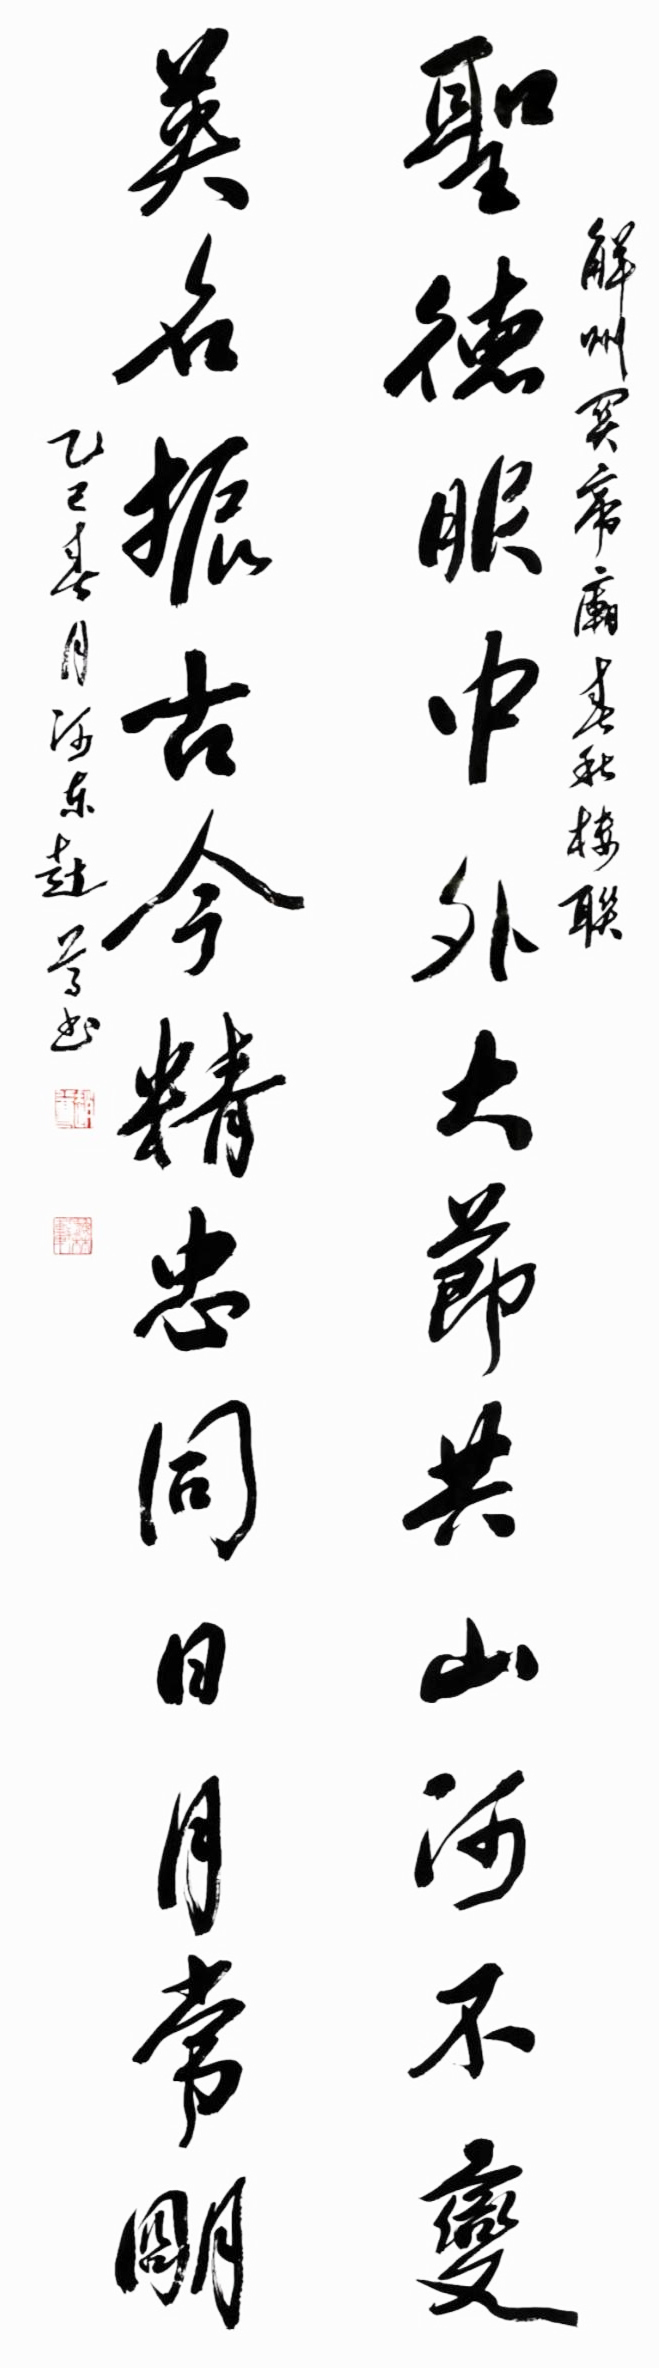 解州关帝庙春秋楼联
聖德服中外大節共山河不變
英名振古今精忠同日月常明
乙巳春月河东赵 书